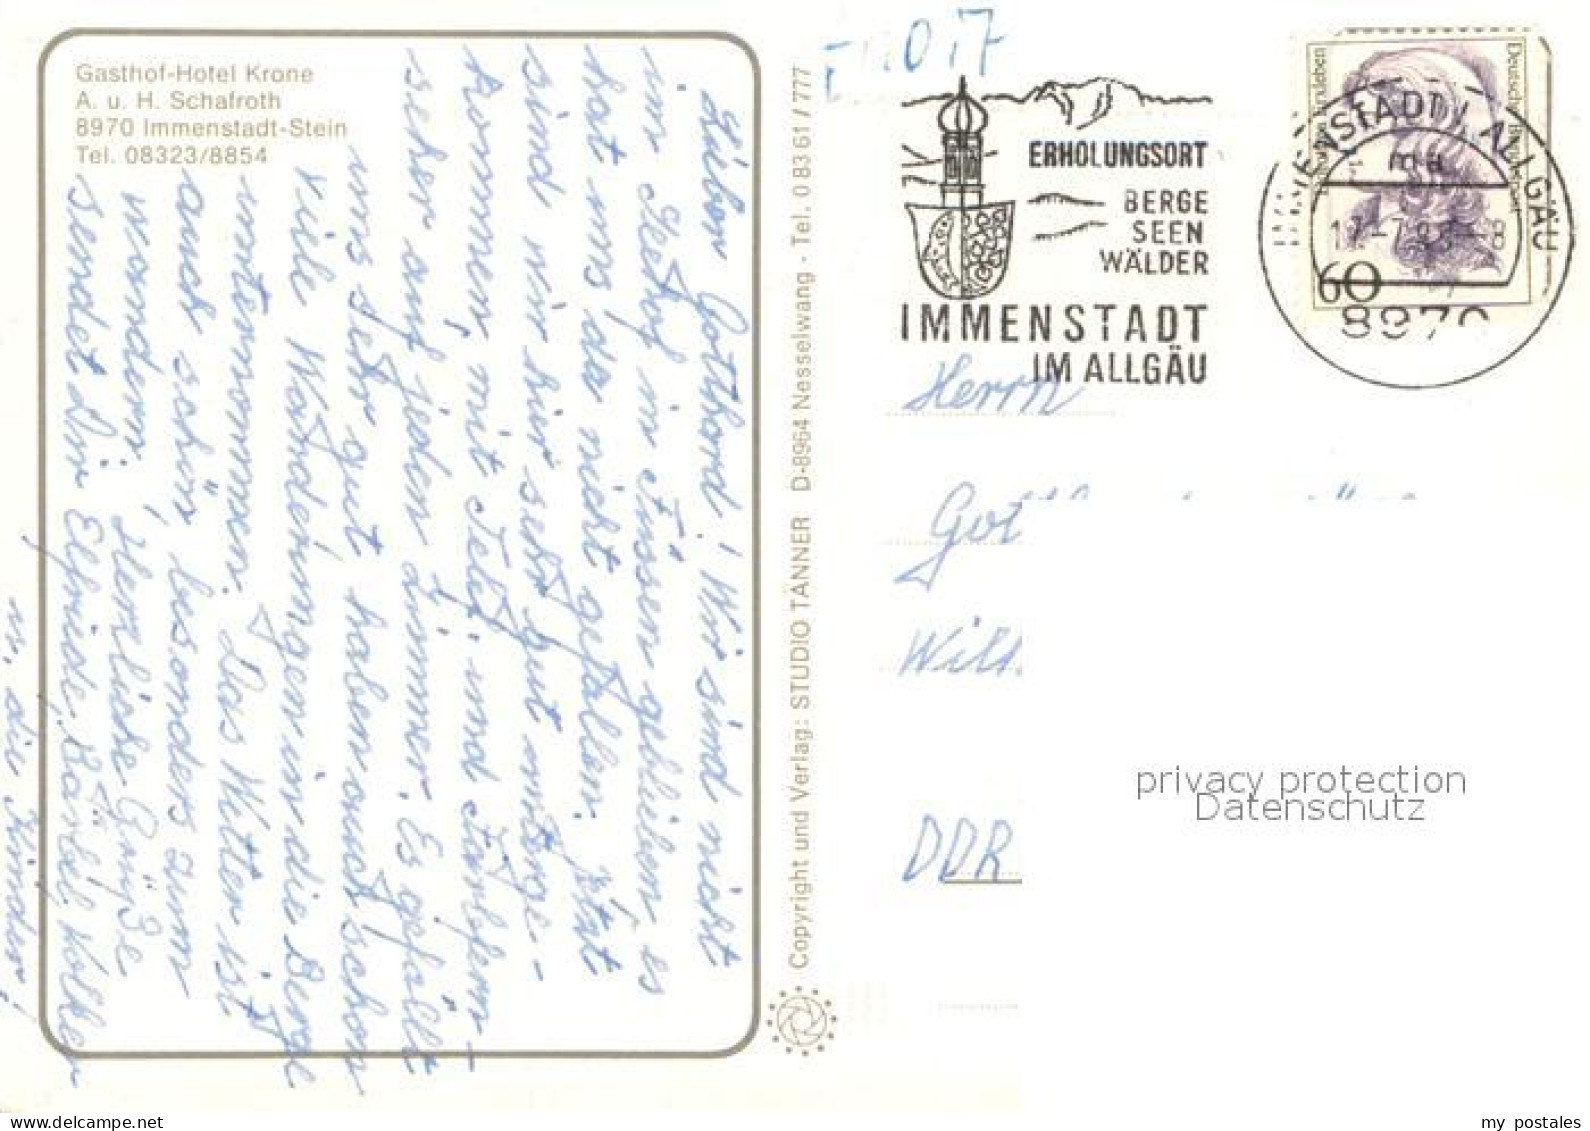 Gasthof-Hotel Krone
A. u. H. Schafroth
8970 Immenstadt-Stein
Tel. 08323/8854
Lieber Gotthard! Wir sind nicht
im Gehof in Füssen geblieben, es
hat uns da nicht gefallen. Jetzt
sind wir hier sehr gut unterge-
kommen, mit Telef. und Farbfern-
seher auf jeden Zimmer. Es gefällt
uns sehr gut haben auch schon
viele Wanderungen in die Berge
unternommen. Das Wetter ist
auch schön, besonders zum
wandern. Herzliche Grüße
sendet Dir Elfriede, Bärbel, Volker
u. die Kinder!
Copyright und Verlag: STUDIO TANNER D-8964 Nesselwang · Tel. 0 83 61 / 777
ERHOLUNGSORT
BERGE
SEEN
WÄLDER
IMMENSTADT
IM ALLGÄU
Deutsche Bundespost
60
IMMENSTADT / ALLGÄU
8970
Herrn
DDR
privacy protection
Datenschutz
my postales